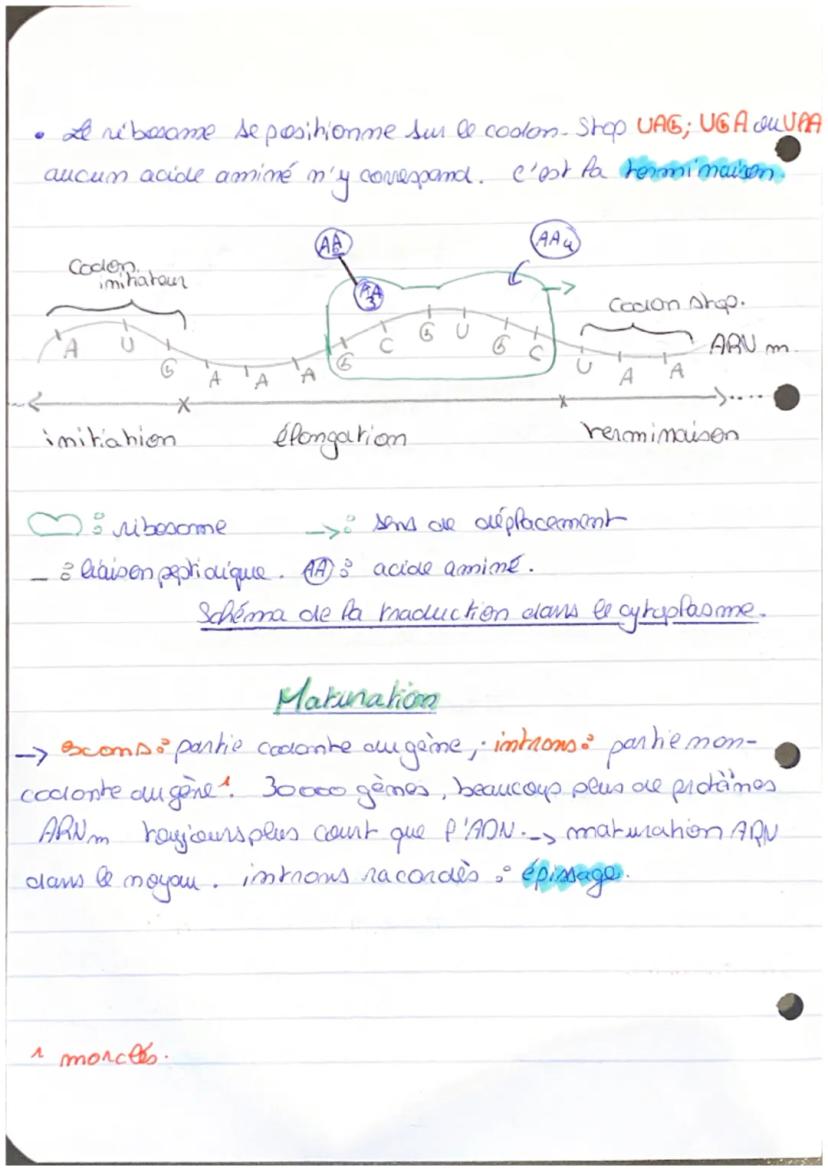 • Le ribosome se positionne sur le codon-stop UAG; UGA ou UAA
aucun acide aminé n'y correspond. c'est la terminaison.
AA
AA4
Codon
initiateur
AA
3
Codon stop.
A U G A A A G C G U G C U A A
ARN m.
initiation élongation terminaison
: ribosome -> : sens de déplacement
- : liaison peptidique. AA : acide aminé.
Schéma de la traduction dans le cytoplasme.
Maturation
-> exons : partie codante du gène, introns : partie non-
codante du gène 1. 30000 gènes, beaucoup plus de protéines
ARNm toujours plus court que l'ADN. -> maturation ARN
dans le noyau. introns racordés : épissage.
1 morclés.